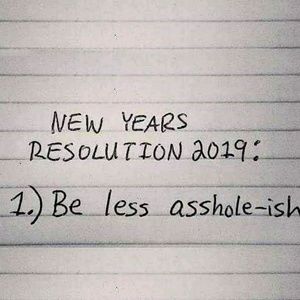 NEW YEARS
RESOLUTION 2019:
1.) Be less asshole-ish